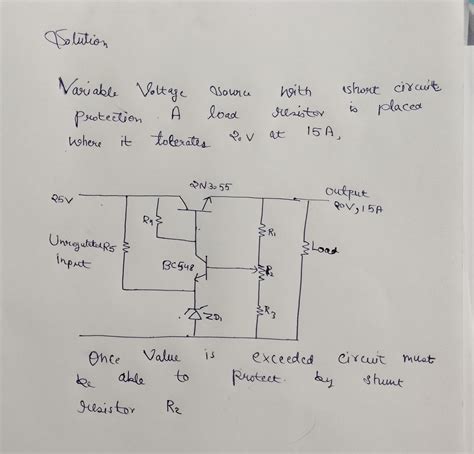 Solution
Variable Voltage Source with short circuit
protection. A load resistor is placed
where it tolerates 20V at 15A,
2N3055
25V
Output
20V, 15A
R4
R1
Unregulated R5
Input
BC548
R2
Load
ZD1
R3
Once Value is exceeded circuit must
be able to protect by shunt
resistor R2